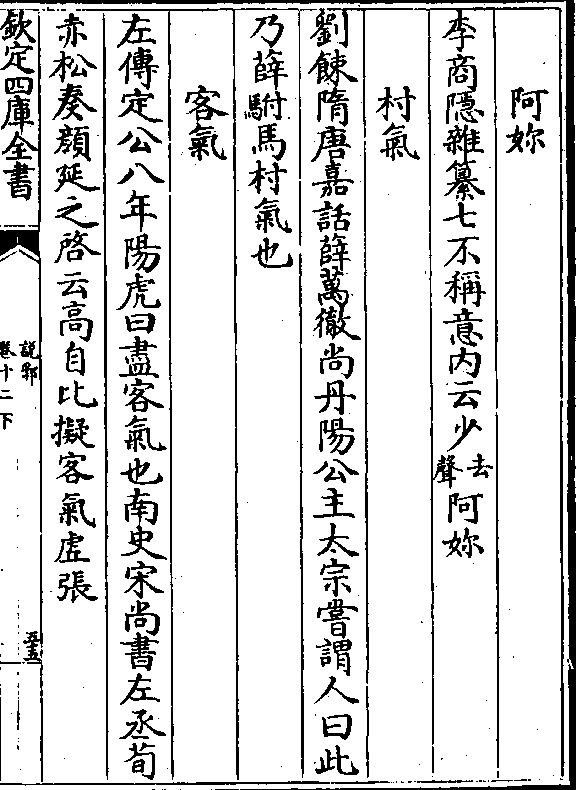 阿妳
李商隱雜纂七不稱意内云少去聲阿妳
村氣
劉餗隋唐嘉話薛萬徹尚丹陽公主太宗嘗謂人曰此
乃薛駙馬村氣也
客氣
左傳定公八年陽虎曰盡客氣也南史宋尚書左丞荀
赤松奏顔延之啓云高自比擬客氣虛張
欽定四庫全書
説郛
卷十二下
五五